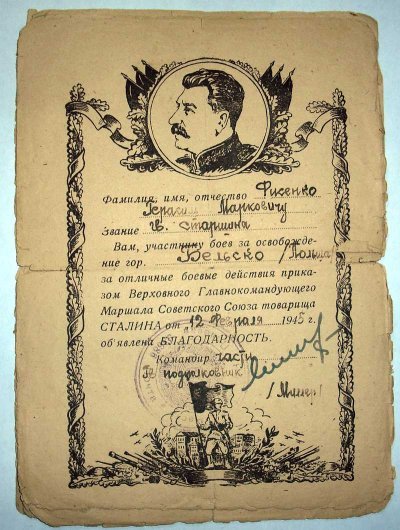 Фамилия, имя, отчество Фисенко
Герасим Марковичу
Звание гв. старшина
Вам, участнику боев за освобожде-
ние гор. Бельско /Польша/
за отличные боевые действия прика-
зом Верховного Главнокомандующего
Маршала Советского Союза товарища
СТАЛИНА от „12 февраля 1945 г.
об'явлена БЛАГОДАРНОСТЬ.
Командир части
Гв. подполковник
/Милер/